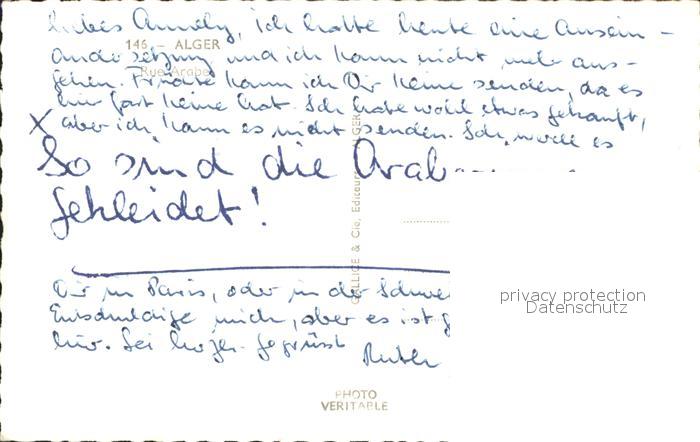 Liebes Annely, ich hatte heute eine Ausein-
andersetzung und ich kann nicht mehr aus-
146 - ALGER
Rue Arabe
gehen. Früchte kann ich Dir keine senden, da es
hier fast keine hat. Ich habe wohl etwas gekauft,
X aber ich kann es nicht senden. Ich werde es
So sind die Arab
gekleidet!
GALLICE & Cie, Editeur ALGER
Dir in Paris, oder in der Schwei
Entschuldige mich, aber es ist g
hier. Sei herzl. gegrüsst
Ruth
privacy protection
Datenschutz
PHOTO
VERITABLE